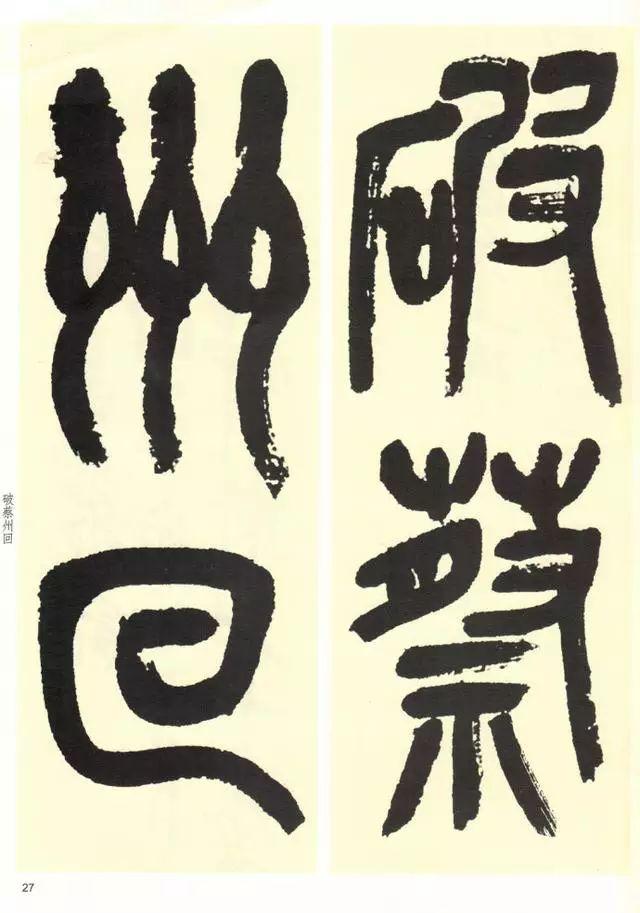 破蔡
州回
破蔡州回
27